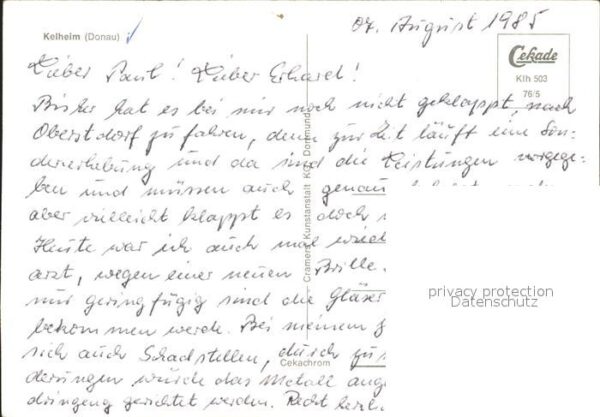 07. August 1985
Kelheim (Donau)
Cekade
Klh 503
76/5
Lieber Paul! Lieber Erhard!
Bisher hat es bei mir noch nicht geklappt, nach
Oberstdorf zu fahren, denn zur Zeit läuft eine Son-
dererhebung und da sind die Leistungen vorgege-
ben und müssen auch genau
aber vielleicht klappt es doch
Heute war ich auch mal wied
arzt, wegen einer neuen Brille.
nur geringfügig sind die Gläser
bekommen werde. Bei meinem
sich auch Schadstellen, durch
derungen wurde das Metall ang
dringend gerichtet werden. Recht herzli
Cramers Kunstanstalt KG, Dortmund
Cekachrom
privacy protection
Datenschutz